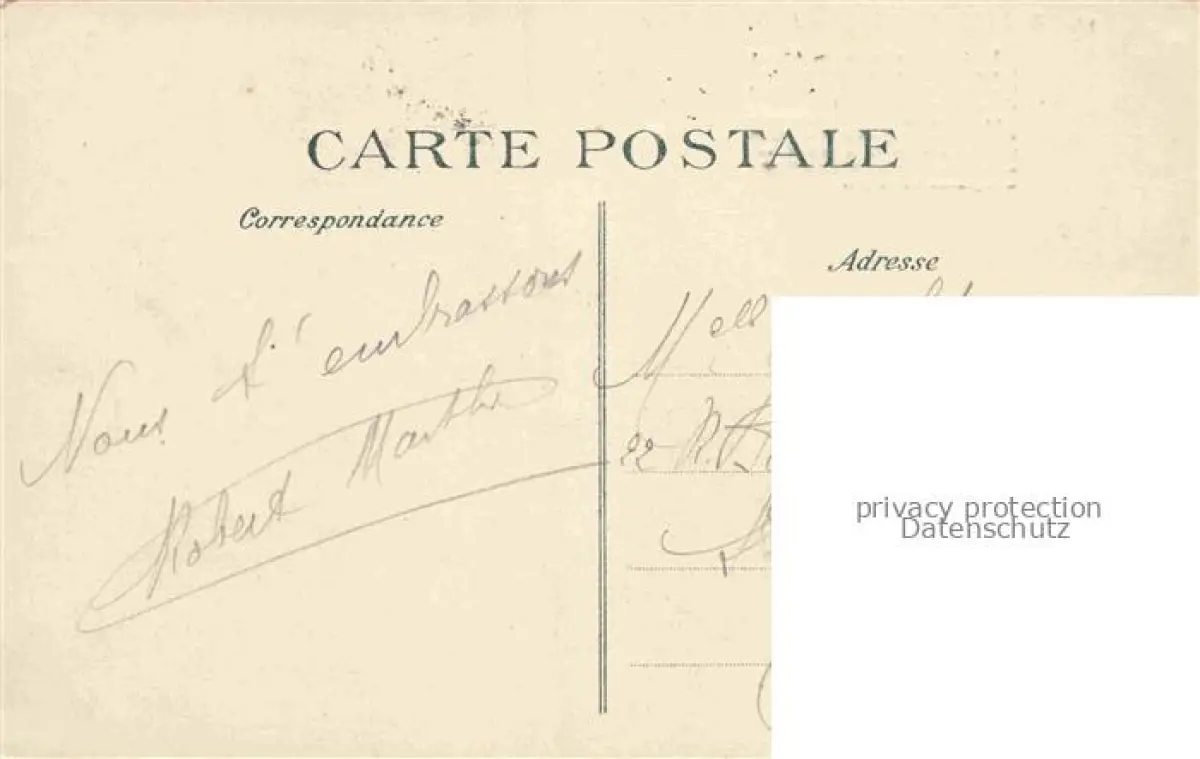 CARTE POSTALE
Correspondance
Nous t'embrassons
Robert Marthe
Adresse
Mell
22 R.
privacy protection
Datenschutz